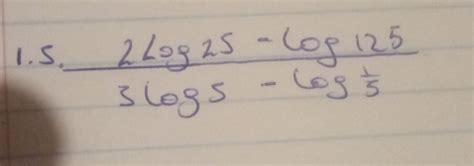 1.5. 2Log25 - Log125
3Log5 - Log 1/5